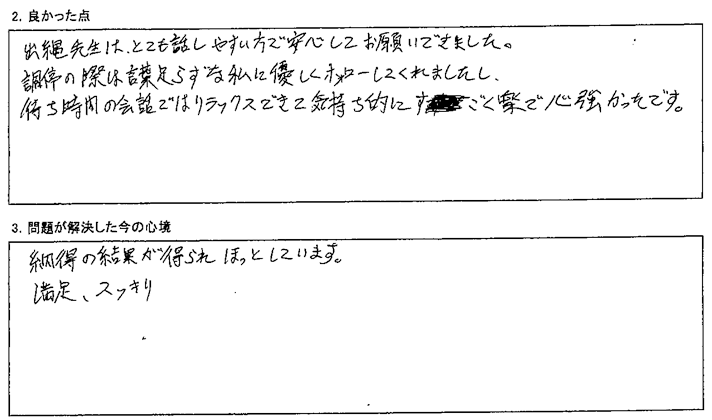 2. 良かった点
出縄先生は、とても話しやすい方で安心してお願いできました。
調停の際は言葉足らずな私に優しくフォローしてくれましたし、
待ち時間の会話ではリラックスできて気持ち的にすごく楽で心強かったです。
3. 問題が解決した今の心境
納得の結果が得られほっとしています。
満足、スッキリ